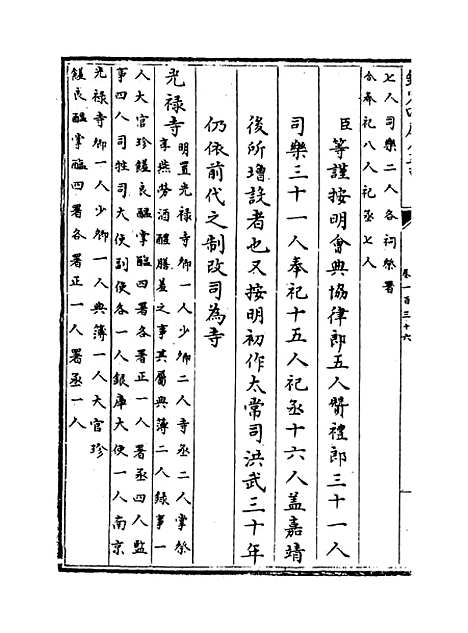 欽定四庫全書
卷一百三十六
七人司樂二人各祠祭署
合奉祀八人祀丞七人
臣等謹按明會典協律郎五人贊禮郎三十一人
司樂三十一人奉祀十五人祀丞十六人蓋嘉靖
後所增設者也又按明初作太常司洪武三十年
仍依前代之制改司為寺
光禄寺
明置光禄寺卿一人少卿二人寺丞二人掌祭
享燕勞酒醴膳羞之事其屬典簿二人錄事一
人大官珍饈良醞掌醢四署各署正一人署丞四人監
事四人司牲司大使副使各一人銀庫大使一人南京
光禄寺卿一人少卿一人典簿一人大官珍
饈良醞掌醢四署各署正一人署丞一人